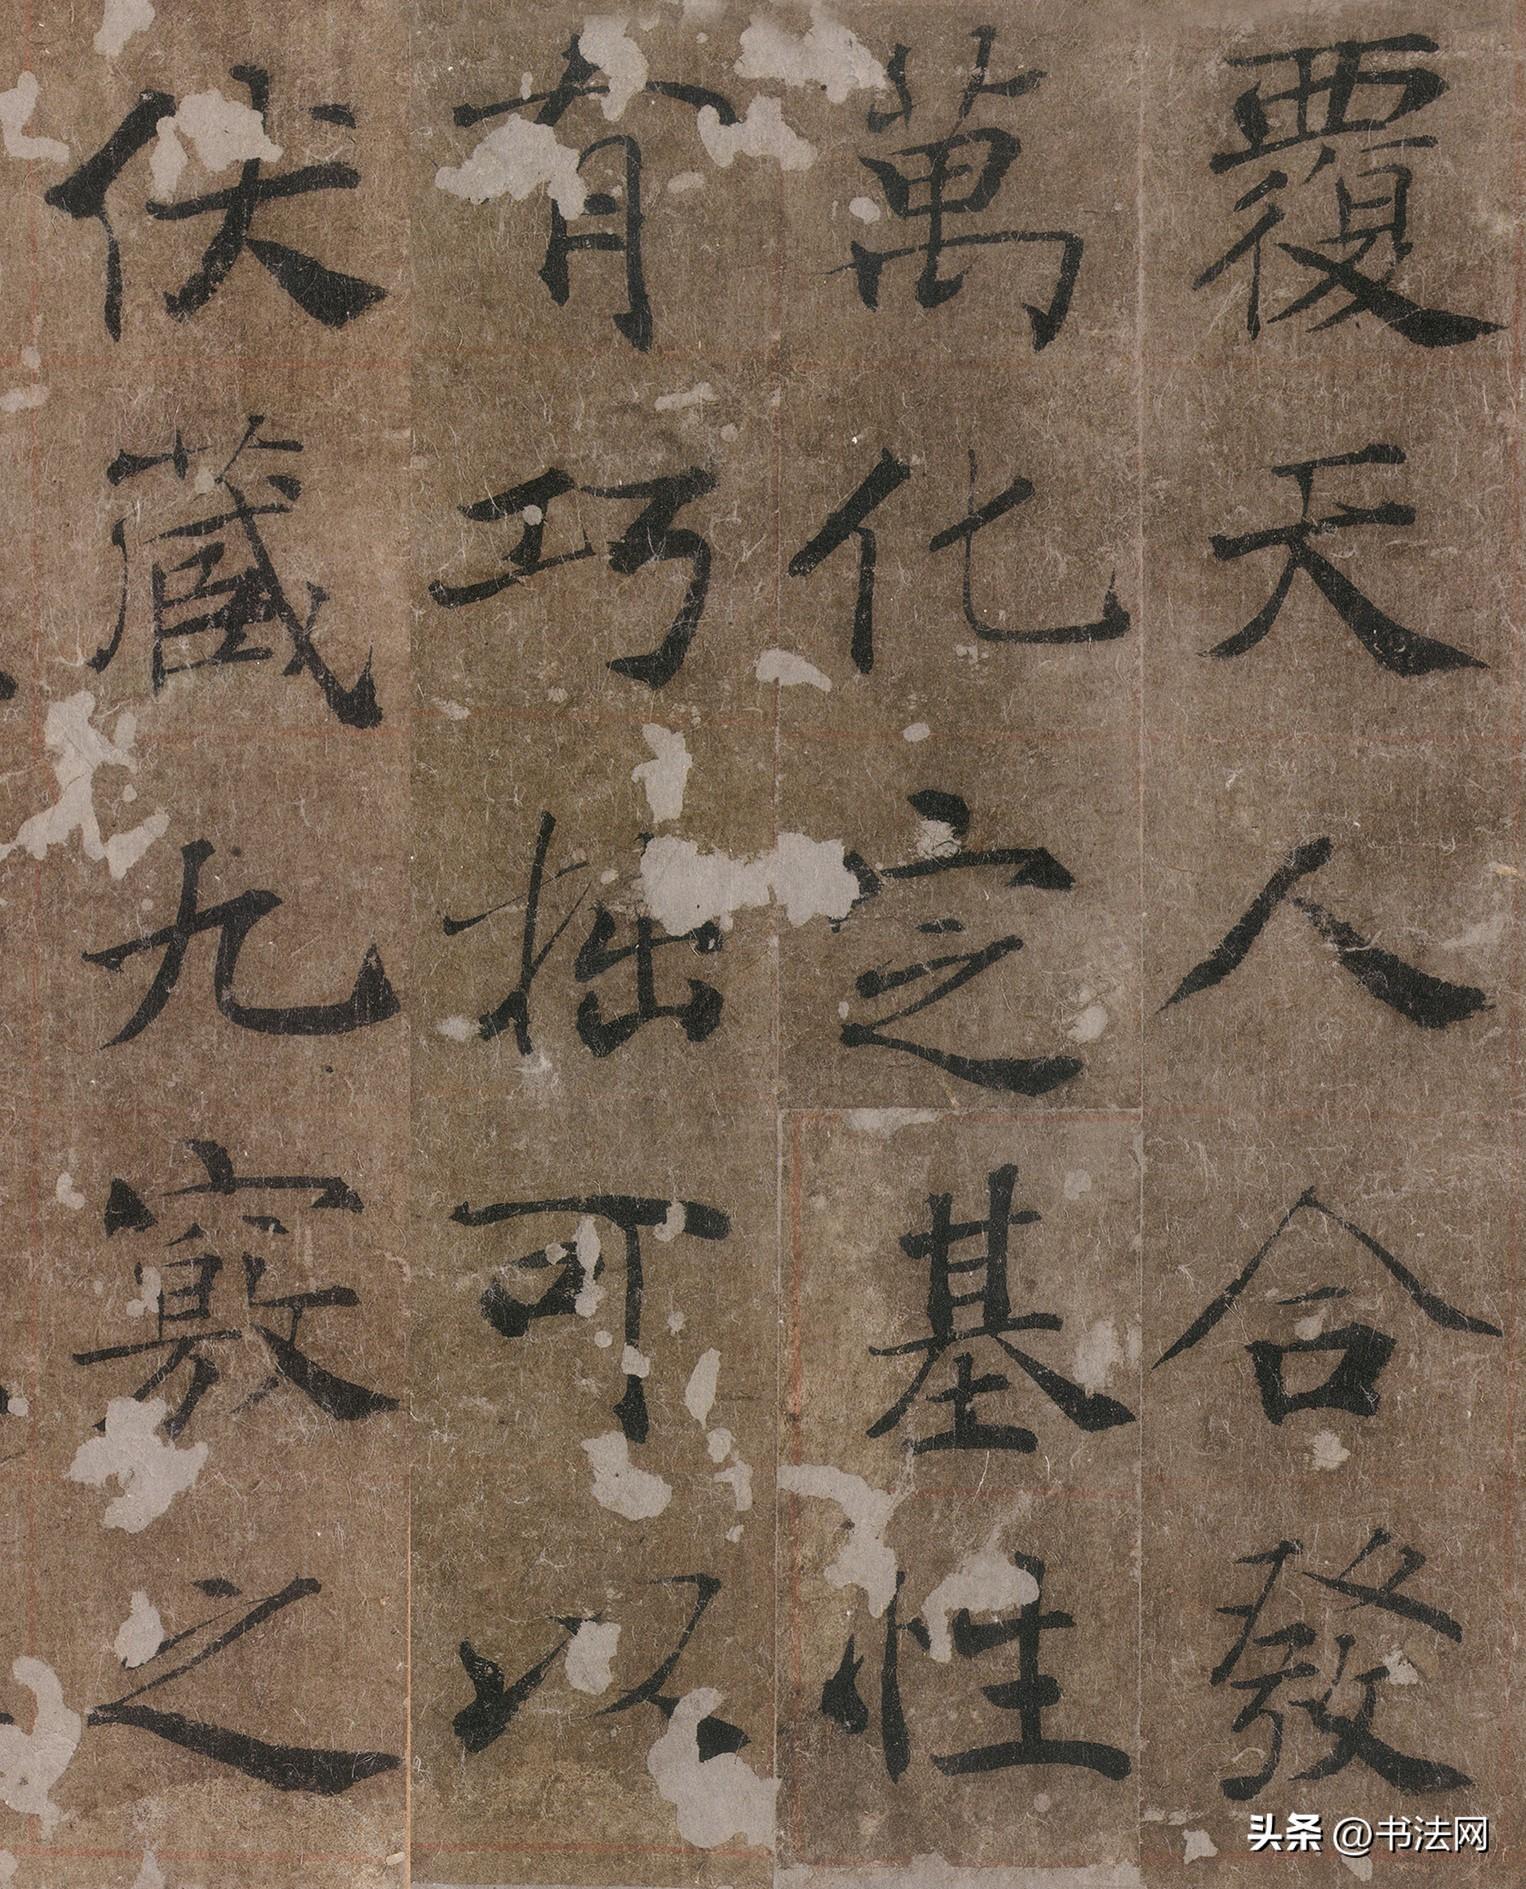 覆天人合發
萬化定基性
有巧拙可以
伏藏九竅之
头条 @书法网